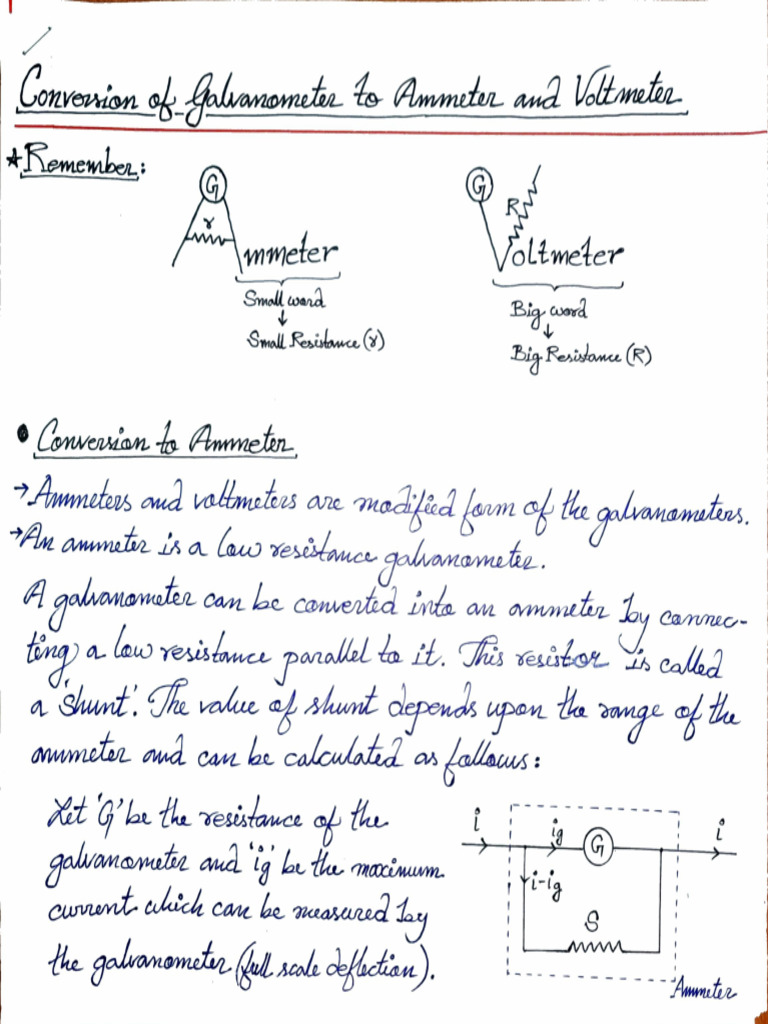 Conversion of Galvanometer to Ammeter and Voltmeter
* Remember:
G
r
mmeter
Small word
↓
Small Resistance (r)
G
R
Voltmeter
Big word
↓
Big Resistance (R)
• Conversion to Ammeter
→ Ammeters and voltmeters are modified form of the galvanometers.
→ An ammeter is a low resistance galvanometer.
A galvanometer can be converted into an ammeter by connec-
ting a low resistance parallel to it. This resistor is called
a 'shunt'. The value of shunt depends upon the range of the
ammeter and can be calculated as follows:
Let 'G' be the resistance of the
galvanometer and 'ig' be the maximum
current which can be measured by
the galvanometer (full scale deflection).
i
ig
G
i
i-ig
S
Ammeter